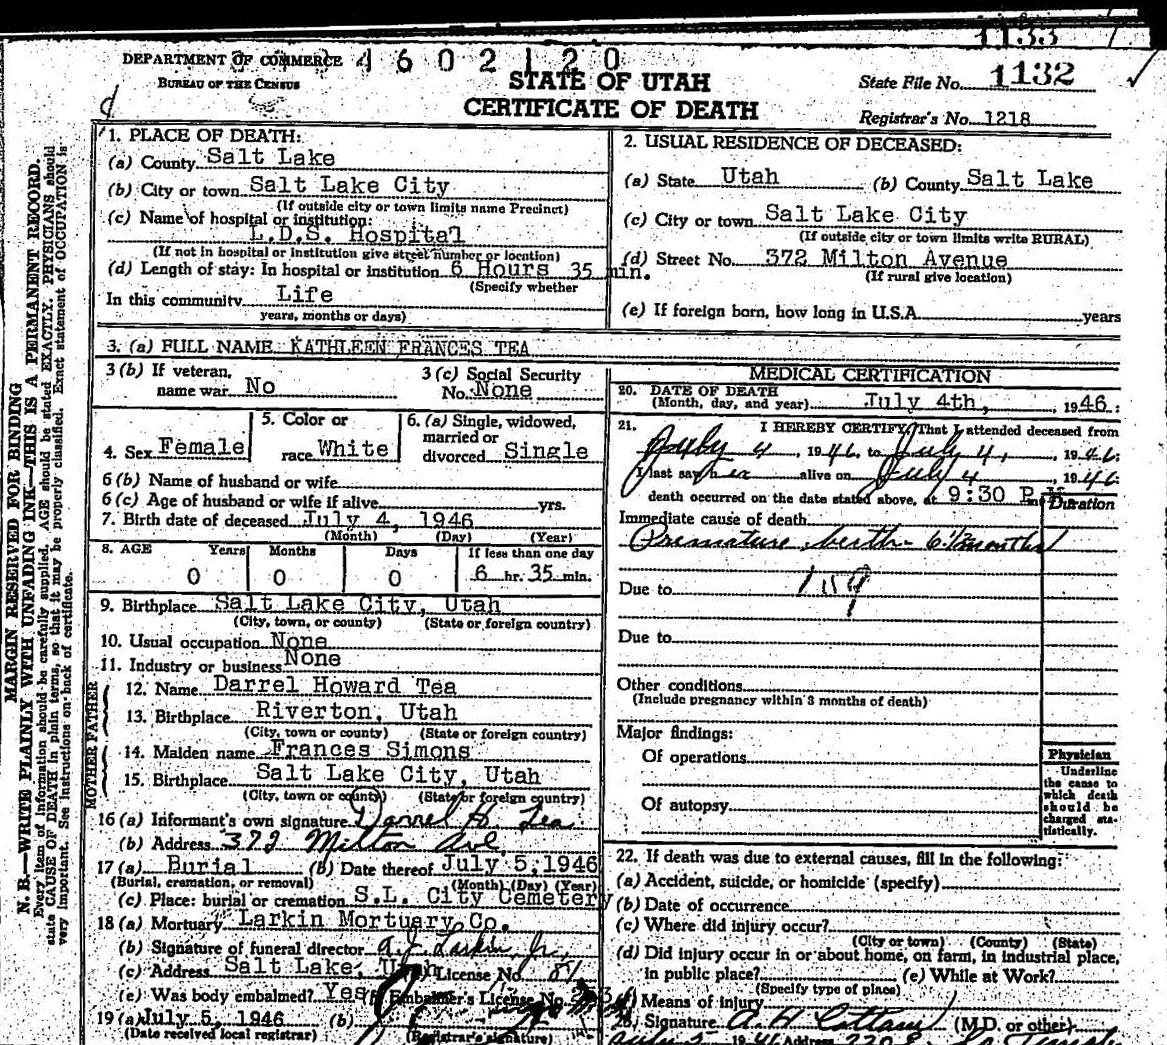 1133
DEPARTMENT OF COMMERCE 4602120
BUREAU OF THE CENSUS
STATE OF UTAH
CERTIFICATE OF DEATH
State File No. 1132
Registrar's No. 1218
MARGIN RESERVED FOR BINDING
N. B.—WRITE PLAINLY WITH UNFADING INK—THIS IS A PERMANENT RECORD.
Every item of information should be carefully supplied. AGE should be stated EXACTLY. PHYSICIANS should
state CAUSE OF DEATH in plain terms, so that it may be properly classified. Exact statement of OCCUPATION is
very important. See instructions on back of certificate.
1. PLACE OF DEATH:
(a) County Salt Lake
(b) City or town Salt Lake City
(If outside city or town limits name Precinct)
(c) Name of hospital or institution:
L.D.S. Hospital
(If not in hospital or institution give street number or location)
(d) Length of stay: In hospital or institution 6 Hours 35 min.
(Specify whether
In this community Life
years, months or days)
2. USUAL RESIDENCE OF DECEASED:
(a) State Utah (b) County Salt Lake
(c) City or town Salt Lake City
(If outside city or town limits write RURAL)
(d) Street No. 372 Milton Avenue
(If rural give location)
(e) If foreign born, how long in U.S.A. years
3. (a) FULL NAME KATHLEEN FRANCES TEA
3 (b) If veteran,
name war No
3 (c) Social Security
No. None
4. Sex Female
5. Color or
race White
6. (a) Single, widowed,
married or
divorced Single
6 (b) Name of husband or wife
6 (c) Age of husband or wife if alive yrs.
7. Birth date of deceased July 4, 1946
(Month) (Day) (Year)
8. AGE Years Months Days If less than one day
0 0 0 6 hr. 35 min.
9. Birthplace Salt Lake City, Utah
(City, town, or county) (State or foreign country)
10. Usual occupation None
11. Industry or business None
FATHER
12. Name Darrel Howard Tea
13. Birthplace Riverton, Utah
(City, town or county) (State or foreign country)
MOTHER
14. Maiden name Frances Simons
15. Birthplace Salt Lake City, Utah
(City, town or county) (State or foreign country)
16 (a) Informant's own signature Darrel H. Tea
(b) Address 372 Milton Ave
17 (a) Burial (b) Date thereof July 5, 1946
(Burial, cremation, or removal) (Month) (Day) (Year)
(c) Place: burial or cremation S.L. City Cemetery
18 (a) Mortuary Larkin Mortuary Co.
(b) Signature of funeral director A. J. Larkin, Jr.
(c) Address Salt Lake, Utah License No. 81
(e) Was body embalmed? Yes Embalmer's License No.
19 (a) July 5, 1946 (b)
(Date received local registrar) (Registrar's signature)
MEDICAL CERTIFICATION
20. DATE OF DEATH
(Month, day, and year) July 4th, 1946
21. I HEREBY CERTIFY, That I attended deceased from
July 4, 1946, to July 4, 1946
I last saw her alive on July 4 1946
death occurred on the date stated above, at 9:30 P. M.
Duration
Immediate cause of death
Premature birth - 6 1/2 months
Due to 159
Due to
Other conditions
(Include pregnancy within 3 months of death)
Major findings:
Of operations
Of autopsy
Physician
Underline
the cause to
which death
should be
charged sta-
tistically.
22. If death was due to external causes, fill in the following:
(a) Accident, suicide, or homicide (specify)
(b) Date of occurrence
(c) Where did injury occur?
(City or town) (County) (State)
(d) Did injury occur in or about home, on farm, in industrial place,
in public place? (e) While at Work?
(Specify type of place)
Means of injury
23. Signature A. H. Cottam (M.D. or other)
1946 Address